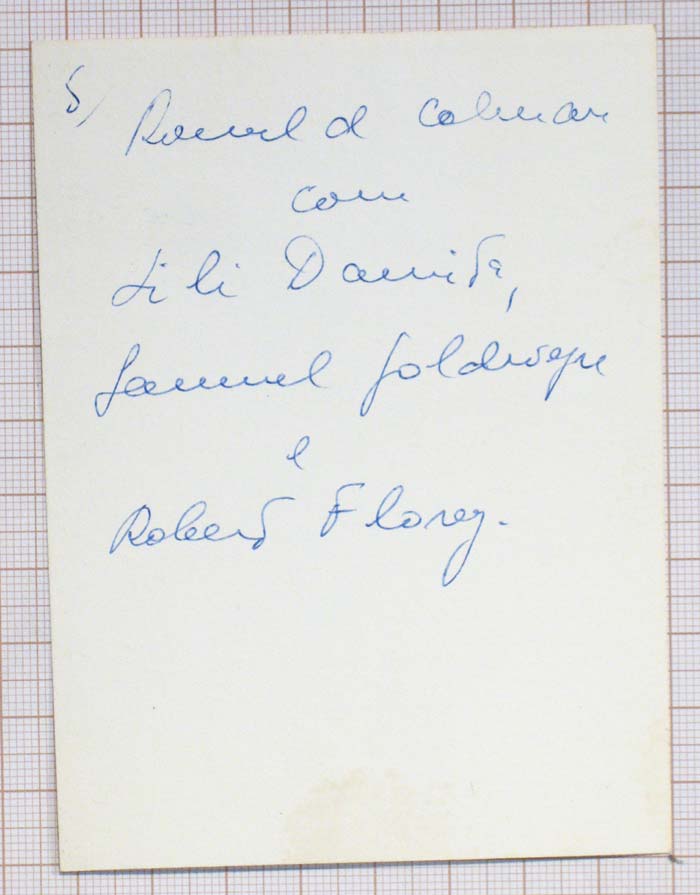 5) Ronald Colman
com
Lili Damita,
Samuel Goldwyn
e
Robert Florey.